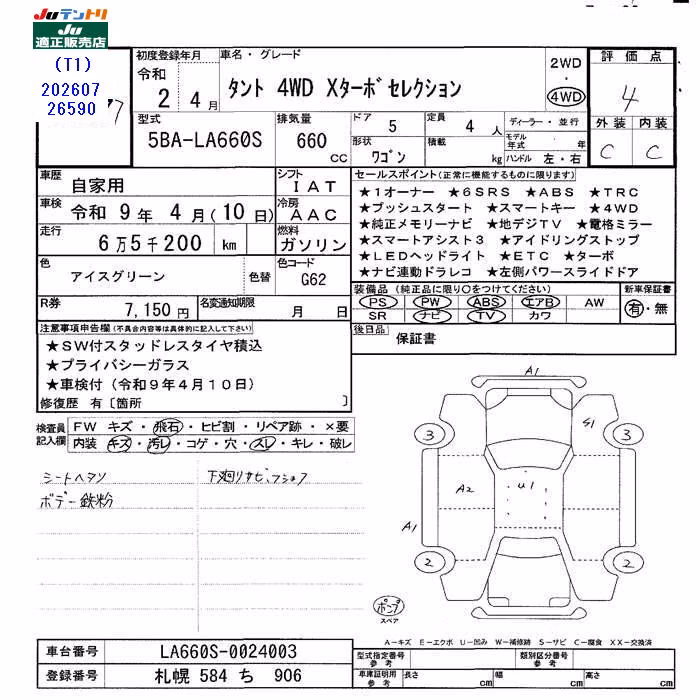 Juテントリ
Ju
適正販売店
(T1)
202607
26590
7
初度登録年月
令和
2 4 月
車名・グレード
タント 4WD Xターボセレクション
2WD
・
4WD
評価点
4
外装 内装
C C
型式
5BA-LA660S
排気量
660
CC
ドア 5
定員 4 人
形状 ワゴン
積載 kg
ディーラー・並行
モデル年式 年
ハンドル 左・右
車歴 自家用
シフト IAT
車検 令和 9年 4月(10日)
冷房 AAC
走行 6万5千200 km
燃料 ガソリン
色 アイスグリーン 色替
色コード G62
R券 7,150円
名変通知期限 月 日
セールスポイント(正常に機能するものに限ります)
★1オーナー ★6SRS ★ABS ★TRC
★プッシュスタート ★スマートキー ★4WD
★純正メモリーナビ ★地デジTV ★電格ミラー
★スマートアシスト3 ★アイドリングストップ
★LEDヘッドライト ★ETC ★ターボ
★ナビ連動ドラレコ ★左側パワースライドドア
装備品(純正品に限り○をつけてください)
PS PW ABS エアB AW
SR ナビ TV カワ
新車保証書
有・無
後日品 保証書
注意事項申告欄(不具合内容等は具体的に記入して下さい)
★SW付スタッドレスタイヤ積込
★プライバシーガラス
★車検付(令和9年4月10日)
修復歴 有〔箇所 〕
検査員記入欄
FW キズ・飛石・ヒビ割・リペア跡・×要
内装 キズ・汚レ・コゲ・穴・スレ・キレ・破レ
シートヘタリ
下廻リサビ、フショク
ボデー鉄粉
A1
S1
3 3
A2
U1
A1
2 2
ポンプ
スペア
A-キズ E-エクボ U-凹み W-補修跡 S-サビ C-腐食 XX-交換済
車台番号 LA660S-0024003
登録番号 札幌 584 ち 906
型式指定番号 参考
類別区分番号 参考
車庫証明用 参考
長さ cm
幅 cm
高さ cm